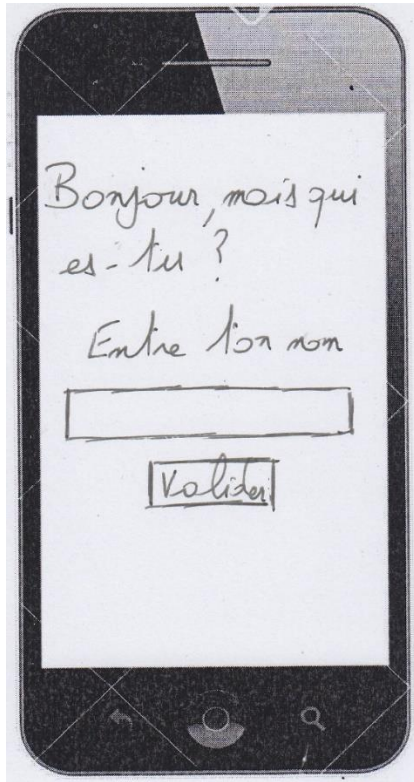 Bonjour, mais qui
es-tu ?
Entre ton nom
Valider